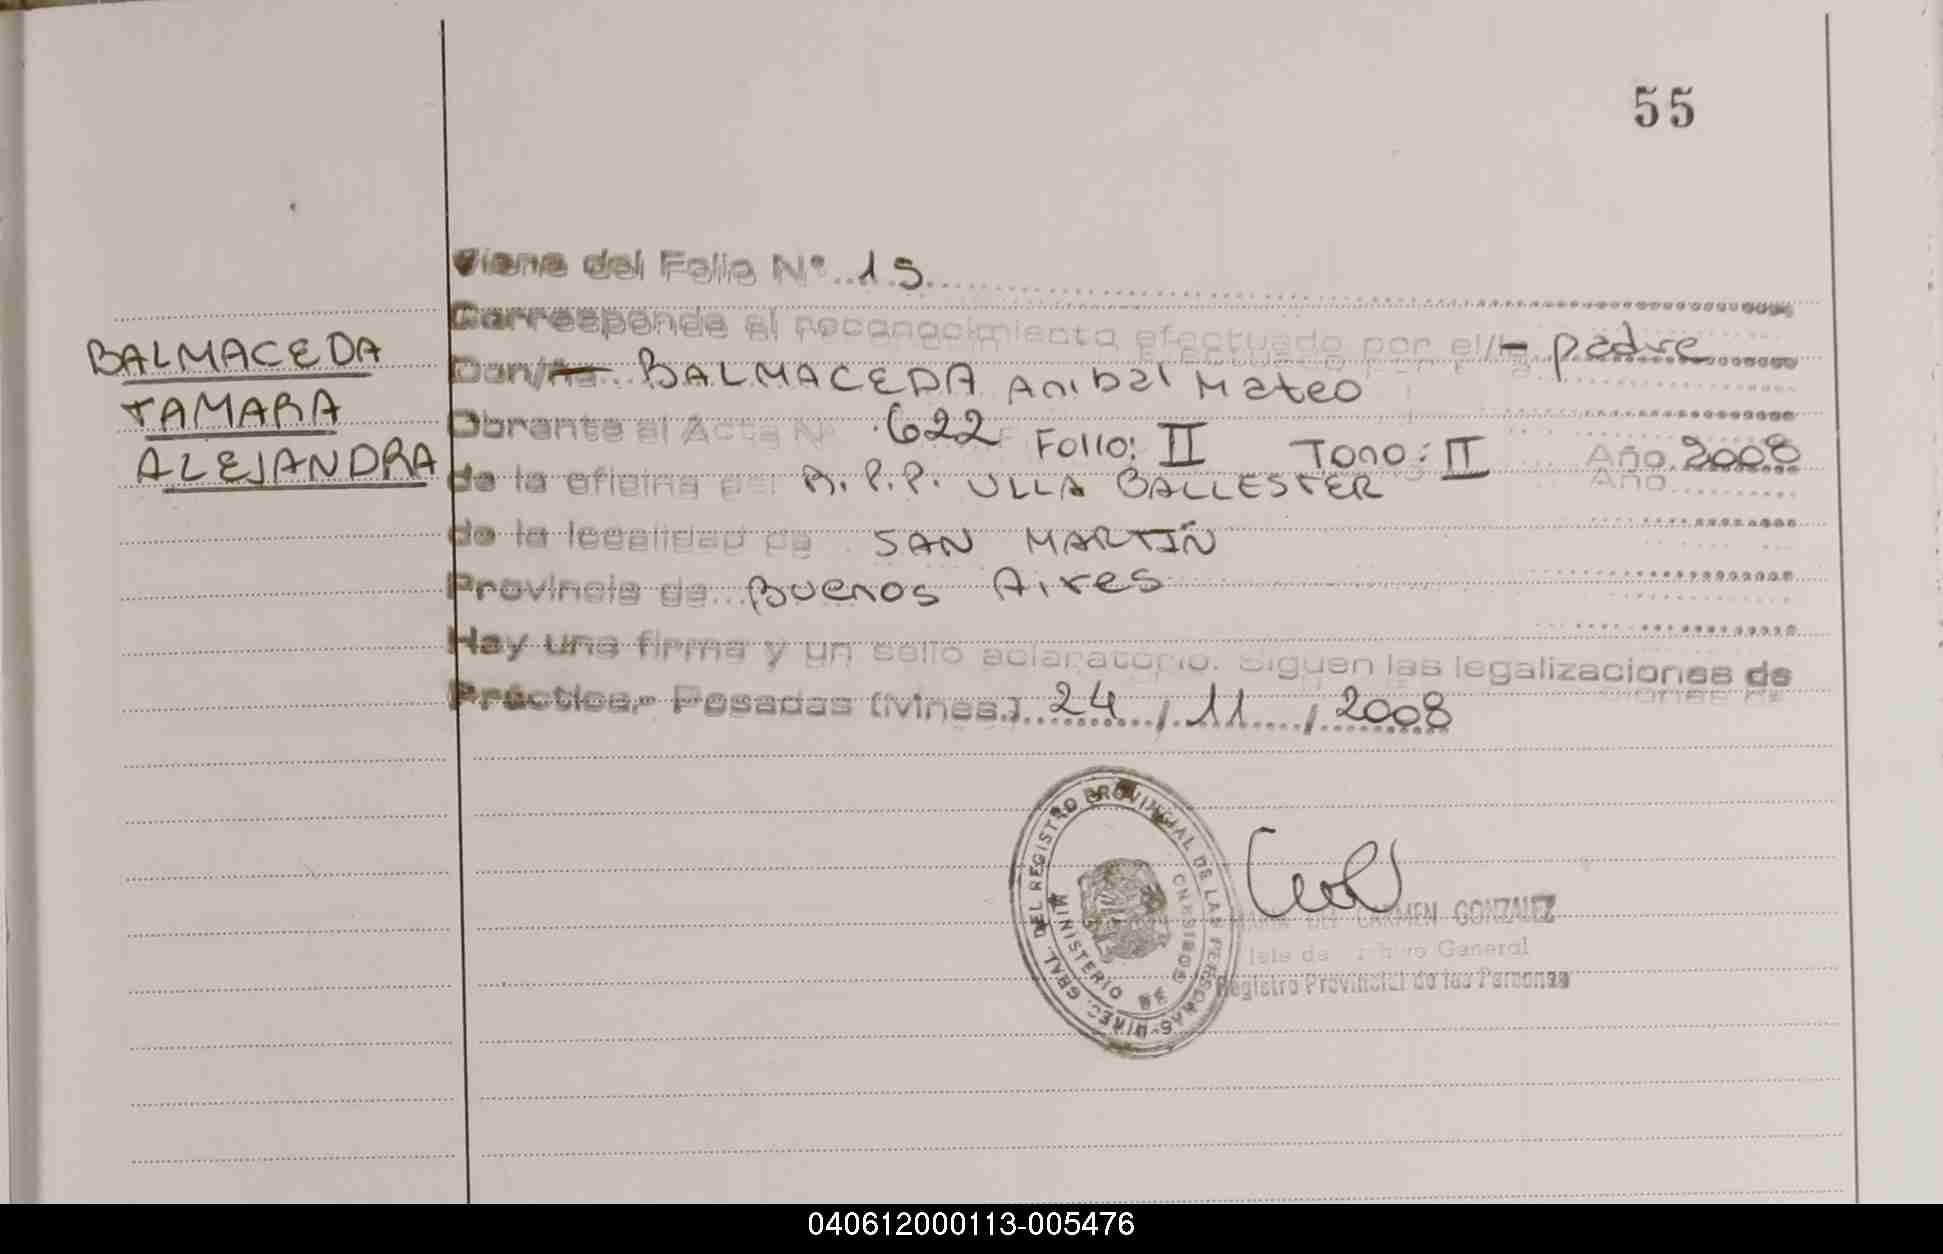 55
Viene del Folio N° 15
Corresponde al reconocimiento efectuado por el/- padre
BALMACEDA
TAMARA
ALEJANDRA
Don/ña BALMACEDA Anibal Mateo
Obrante al Acta N° 622 Folio: II Tomo: II Año 2008
de la oficina del R.P.P. VILLA BALLESTER
de la localidad de SAN MARTÍN
Provincia de Buenos Aires
Hay una firma y un sello aclaratorio. Siguen las legalizaciones de
Práctica.- Posadas (Mnes.) 24/11/2008
DEL REGISTRO PROVINCIAL DE LAS PERSONAS
MINISTERIO DE GOBIERNO
MARIA DEL CARMEN GONZALEZ
Jefe de Archivo General
Registro Provincial de las Personas
040612000113-005476